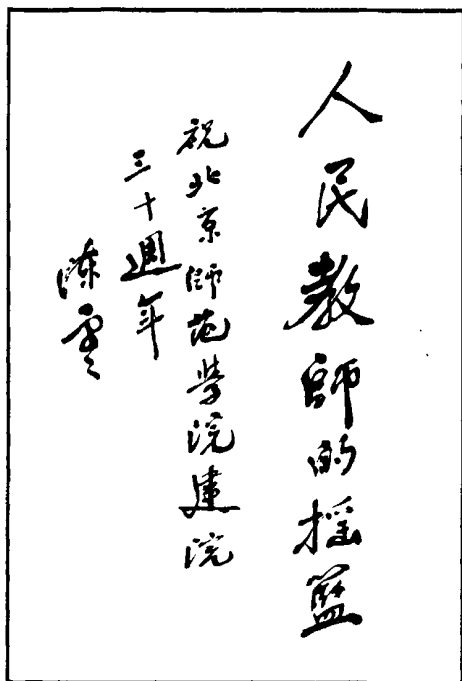 人民教師的摇籃
祝北京師范學院建院
三十週年
陳雲